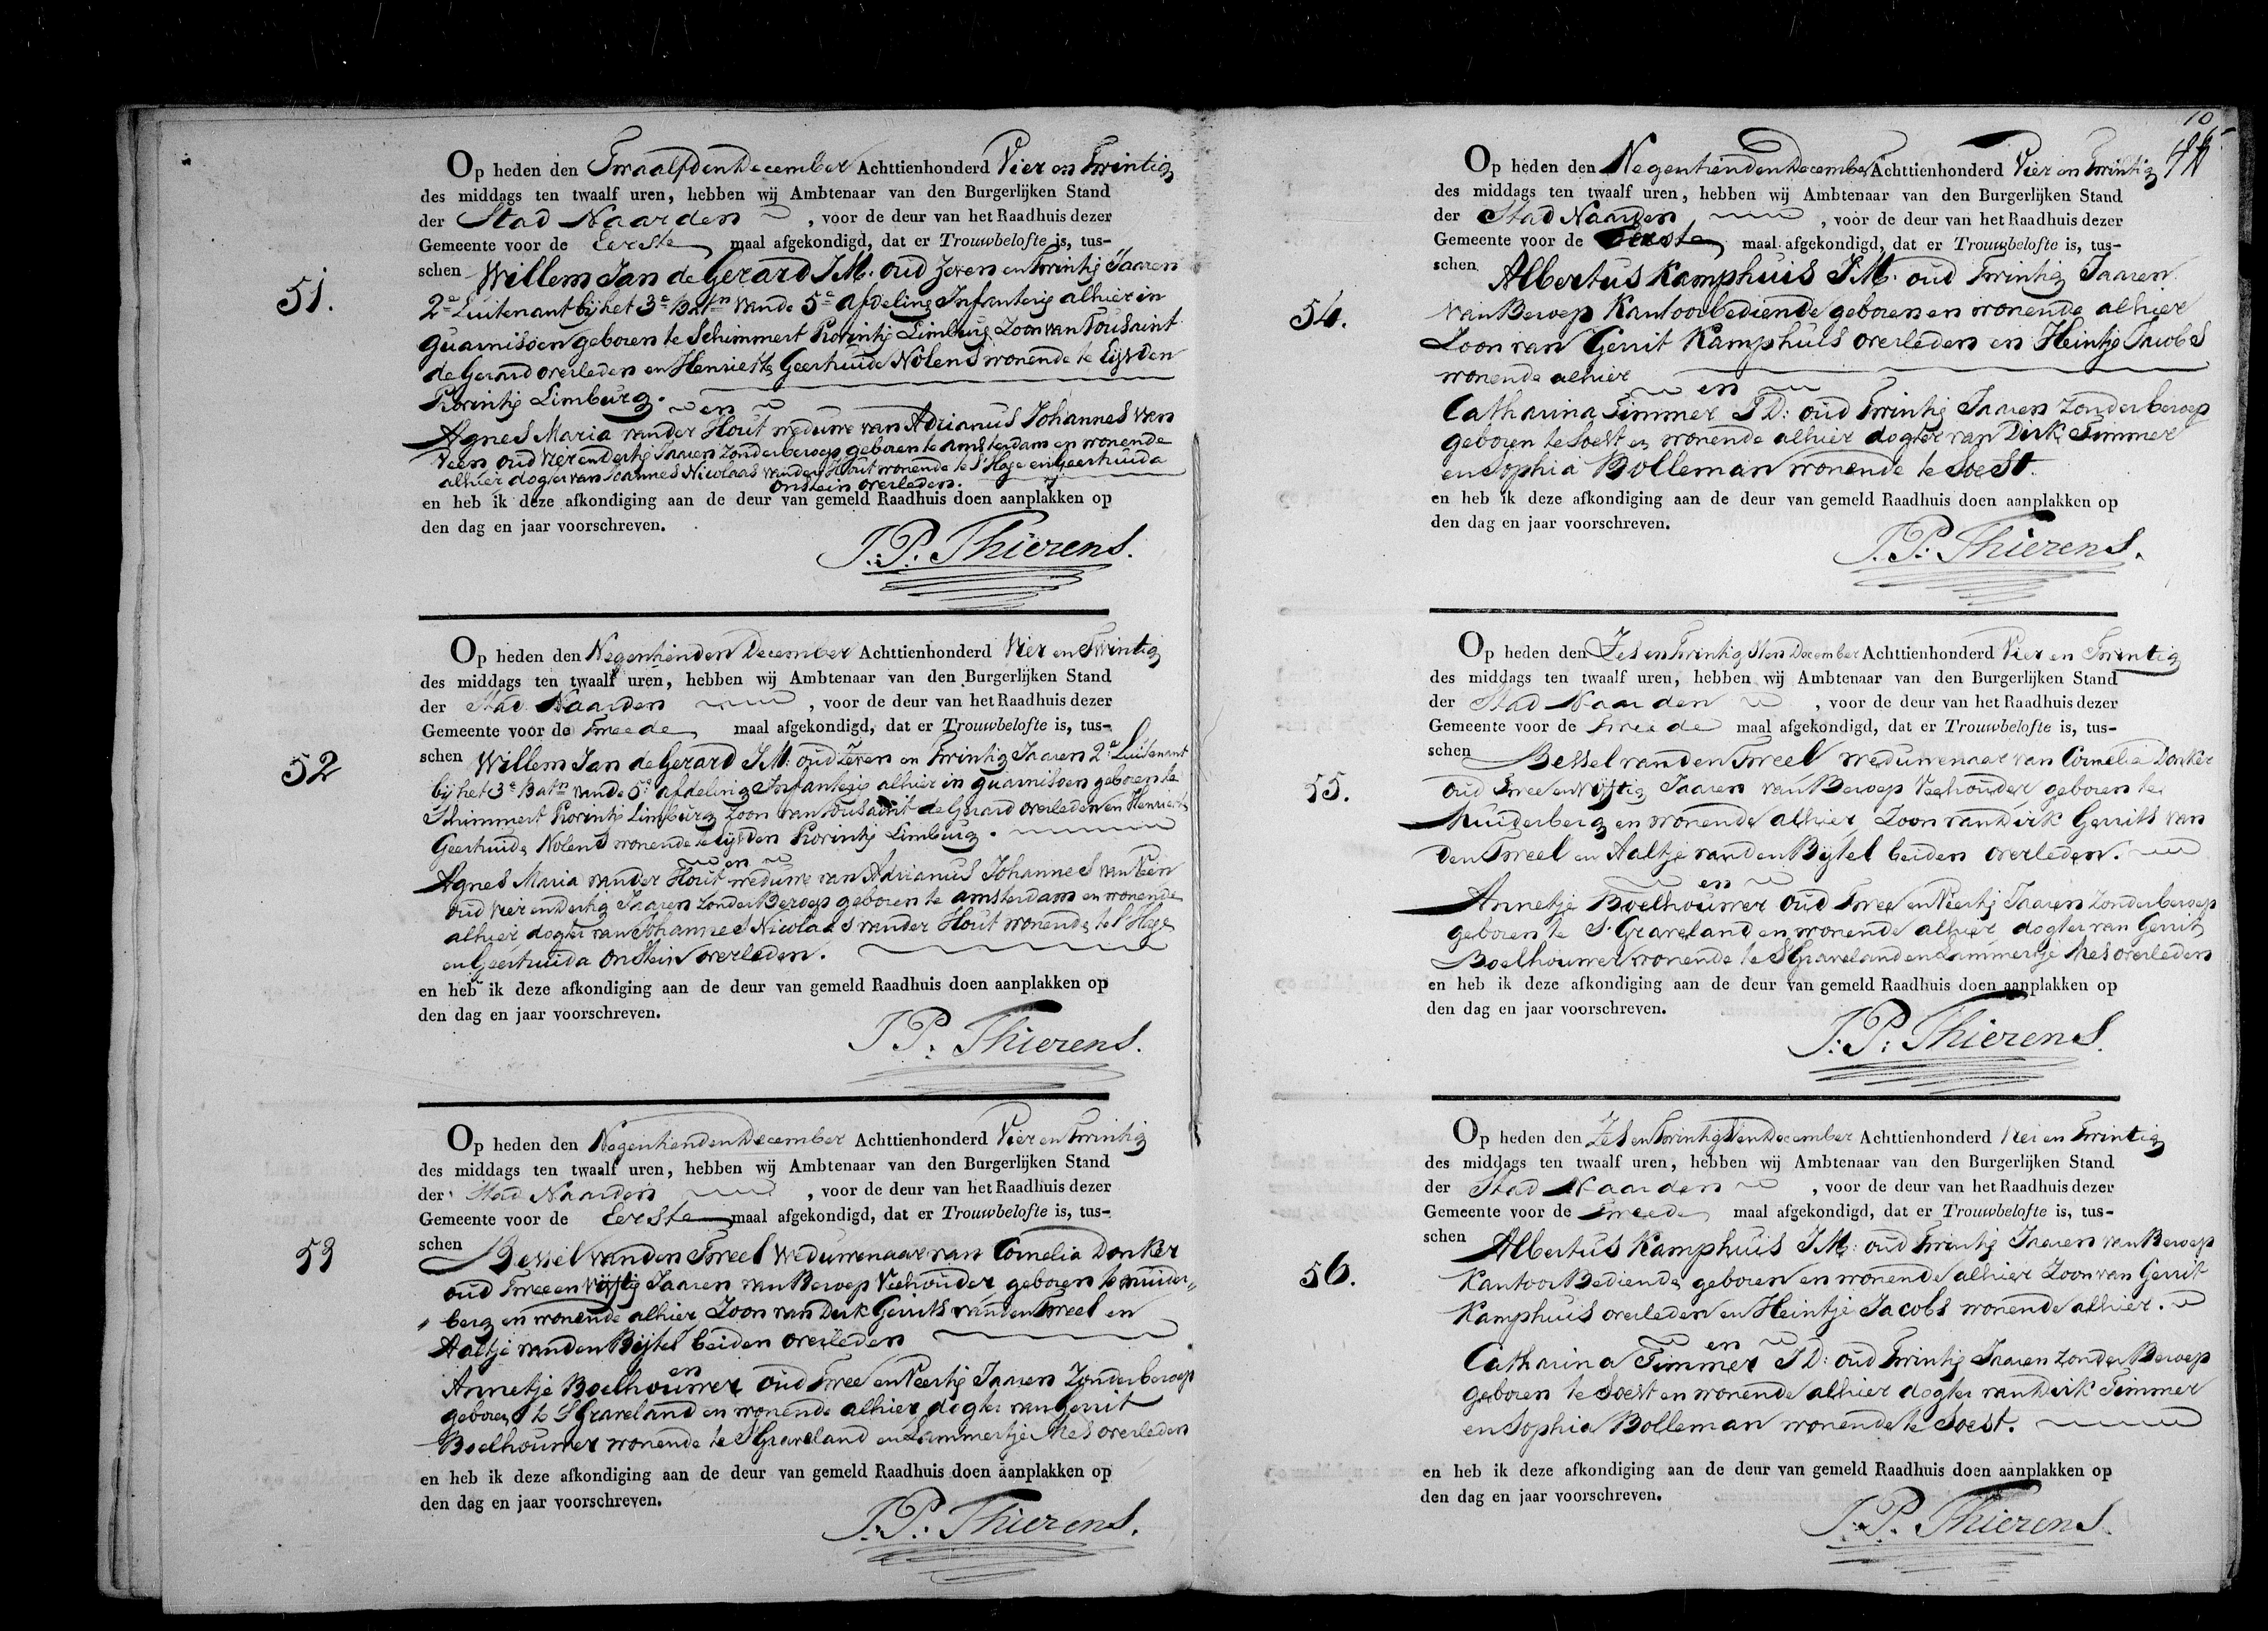 51.
Op heden den Twaalfden December Achttienhonderd Vier en Twintig
des middags ten twaalf uren, hebben wij Ambtenaar van den Burgerlijken Stand
der Stad Naarden , voor de deur van het Raadhuis dezer
Gemeente voor de Eerste maal afgekondigd, dat er Trouwbelofte is, tus-
schen Willem Jan de Gerard J.M. oud Zeven en Twintig Jaaren
2e Luitenant bij het 3e Batn van de 5e afdeling Infanterij alhier in
guarnisoen geboren te Schimmert Provintij Limburg Zoon van Tousaint
de Gerard overleden en Henriette Geertruide Nolens wonende te Eijsden
Provintij Limburg.
en
Agnes Maria vander Hout weduwe van Adrianus Johannes van
Veen oud vier en dertig Jaaren Zonder beroep geboren te amsterdam en wonende
alhier dogter van Joannes Nicolaas vander Hout wonende te S'Hage en Geertruida
Onstein overleden.
en heb ik deze afkondiging aan de deur van gemeld Raadhuis doen aanplakken op
den dag en jaar voorschreven.
J.P. Thierens.
52
Op heden den Negentienden December Achttienhonderd Vier en Twintig
des middags ten twaalf uren, hebben wij Ambtenaar van den Burgerlijken Stand
der Stad Naarden , voor de deur van het Raadhuis dezer
Gemeente voor de Tweede maal afgekondigd, dat er Trouwbelofte is, tus-
schen Willem Jan de Gerard J.M: oud Zeven en Twintig Jaaren 2e Luitenant
bij het 3e Batn van de 5e afdeling Infanterij alhier in guarnisoen geboren te
Schimmert Provintij Limburg Zoon van Tousaint de Gerard overleden en Henriette
Geertruide Nolens wonende te Eijsden Provintij Limburg.
en
Agnes Maria vander Hout weduwe van Adrianus Johannes van Veen
oud vier en dertig Jaaren Zonder Beroep geboren te amsterdam en wonende
alhier dogter van Johannes Nicolaas vander Hout wonende te S'Hage
en Geertruida Onstein overleden.
en heb ik deze afkondiging aan de deur van gemeld Raadhuis doen aanplakken op
den dag en jaar voorschreven.
J P: Thierens.
53
Op heden den Negentienden December Achttienhonderd Vier en Twintig
des middags ten twaalf uren, hebben wij Ambtenaar van den Burgerlijken Stand
der Stad Naarden , voor de deur van het Raadhuis dezer
Gemeente voor de Eerste maal afgekondigd, dat er Trouwbelofte is, tus-
schen Bessel vanden Tweel weduwenaar van Cornelia Donker
oud Twee en Vijftig Jaaren van Beroep Veehouder geboren te muider-
berg en wonende alhier Zoon van Derk Gerrits vanden Tweel en
Aaltje vanden Bijtel beiden overleden
en
Annetje Boelhouwer oud Twee en Veertig Jaaren Zonder beroep
geboren te S'Graveland en wonende alhier dogter van Gerrit
Boelhouwer wonende te S'Graveland en Lammertje Mes overleden
en heb ik deze afkondiging aan de deur van gemeld Raadhuis doen aanplakken op
den dag en jaar voorschreven.
J.P. Thierens.
10
54.
Op heden den Negentienden December Achttienhonderd Vier en Twintig
des middags ten twaalf uren, hebben wij Ambtenaar van den Burgerlijken Stand
der Stad Naarden , voor de deur van het Raadhuis dezer
Gemeente voor de Eerste maal afgekondigd, dat er Trouwbelofte is, tus-
schen Albertus Kamphuis J.M. oud Twintig Jaaren
van Beroep Kantoorbediende geboren en wonende alhier
Zoon van Gerrit Kamphuis overleden en Heintje Jacobs
wonende alhier
en
Catharina Timmer J D: oud Twintig Jaaren Zonder beroep
geboren te Soest en wonende alhier dogter van Dirk Timmer
en Sophia Bolleman wonende te Soest.
en heb ik deze afkondiging aan de deur van gemeld Raadhuis doen aanplakken op
den dag en jaar voorschreven.
J.P. Thierens.
55.
Op heden den Zes en Twintigsten December Achttienhonderd Vier en Twintig
des middags ten twaalf uren, hebben wij Ambtenaar van den Burgerlijken Stand
der Stad Naarden , voor de deur van het Raadhuis dezer
Gemeente voor de Tweede maal afgekondigd, dat er Trouwbelofte is, tus-
schen Bessel vanden Tweel weduwenaar van Cornelia Donker
oud Twee en Vijftig Jaaren van Beroep Veehouder geboren te
Muiderberg en wonende alhier Zoon van Dirk Gerrits van
den Tweel en Aaltje vanden Bijtel beiden overleden.
en
Annetje Boelhouwer oud Twee en Veertig Jaaren Zonder beroep
geboren te S'Graveland en wonende alhier dogter van Gerrit
Boelhouwer wonende te S'Graveland en Lammertje Mes overleden
en heb ik deze afkondiging aan de deur van gemeld Raadhuis doen aanplakken op
den dag en jaar voorschreven.
J.P: Thierens.
56.
Op heden den Zes en Twintigsten December Achttienhonderd Vier en Twintig
des middags ten twaalf uren, hebben wij Ambtenaar van den Burgerlijken Stand
der Stad Naarden , voor de deur van het Raadhuis dezer
Gemeente voor de Tweede maal afgekondigd, dat er Trouwbelofte is, tus-
schen Albertus Kamphuis J.M: oud Twintig Jaaren van Beroep
Kantoor Bediende geboren en wonende alhier Zoon van Gerrit
Kamphuis overleden en Heintje Jacobs wonende alhier.
en
Catharina Timmer J D: oud Twintig Jaaren Zonder Beroep
geboren te Soest en wonende alhier dogter van Dirk Timmer
en Sophia Bolleman wonende te Soest.
en heb ik deze afkondiging aan de deur van gemeld Raadhuis doen aanplakken op
den dag en jaar voorschreven.
J.P. Thierens